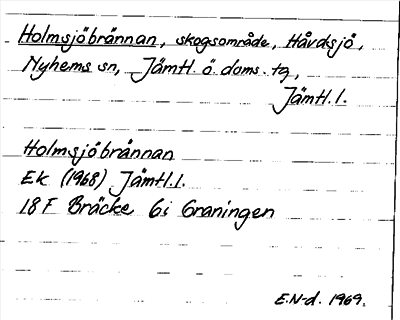 Holmsjöbrännan, skogsområde, Håvdsjö,
Nyhems sn, Jämtl. ö. doms. tg,
Jämtl.l.
Holmsjöbrännan
Ek (1968) Jämtl.l.
18F Bräcke 6i Graningen
E.N-d. 1969.